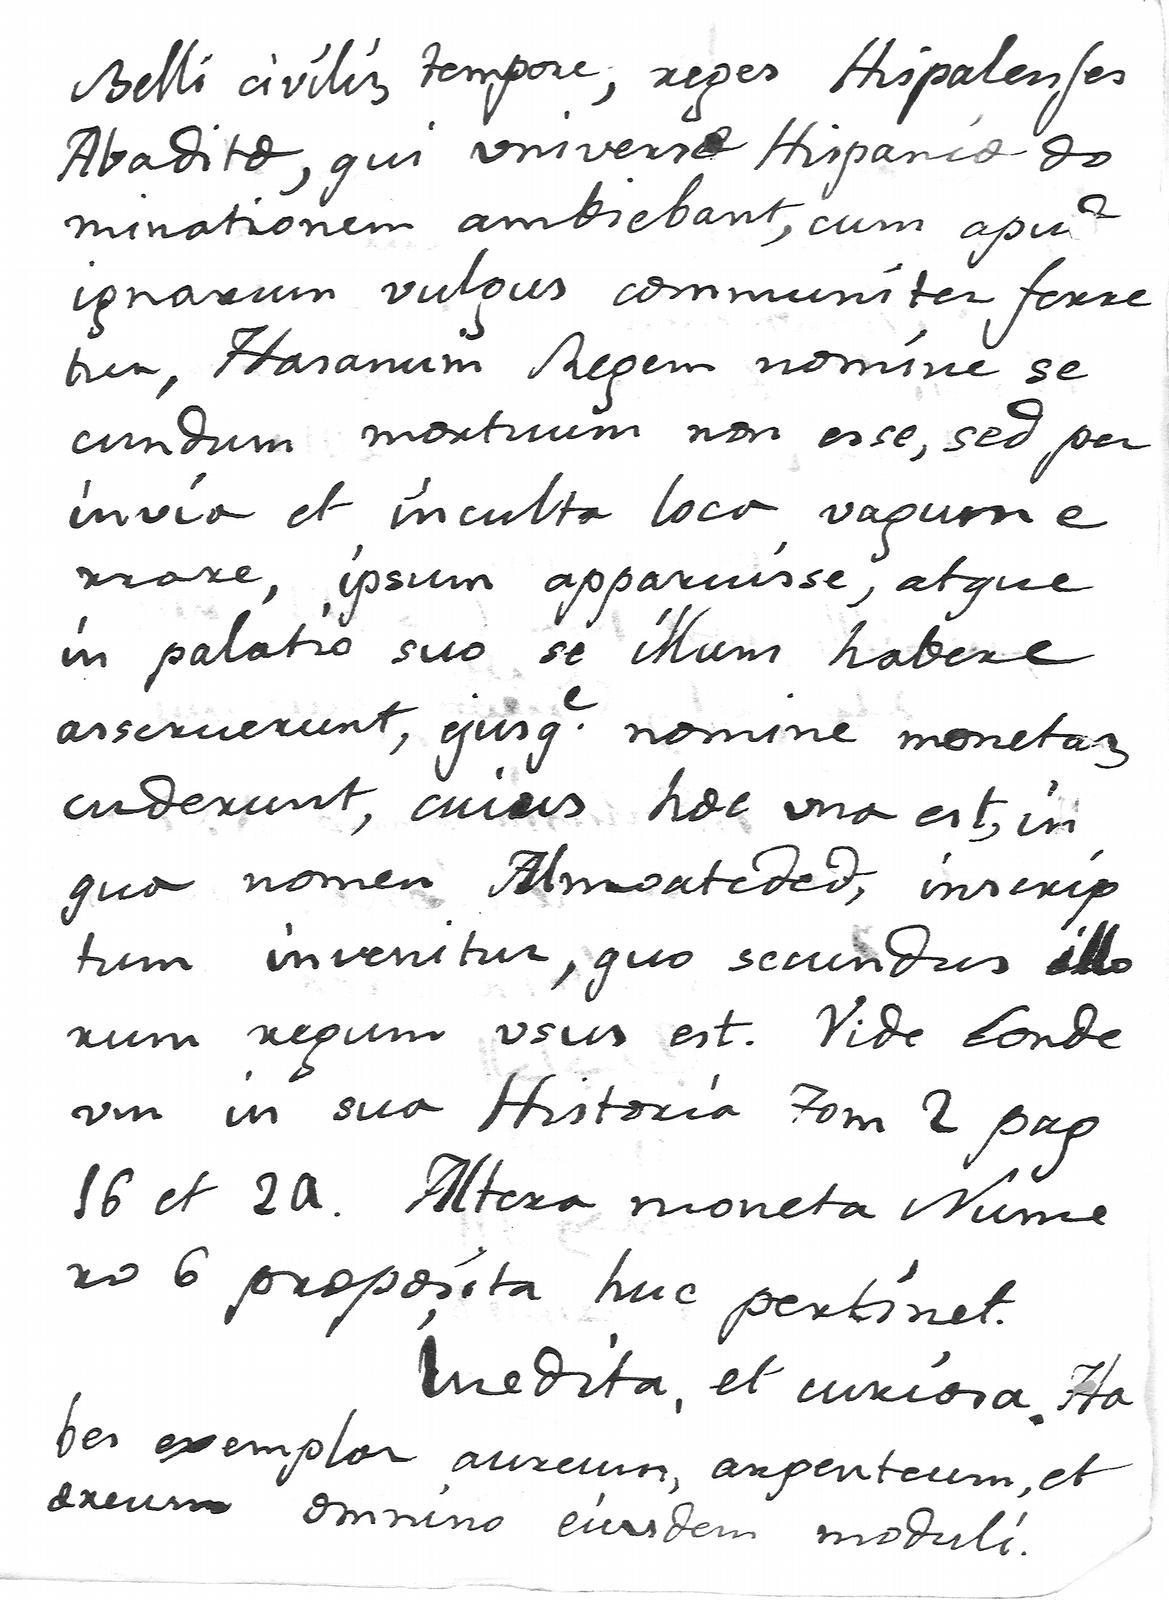 Belli civilis tempore, reges Hispalenses
Abaditæ, qui universæ Hispaniæ do
minationem ambiebant, cum apud
ignarum vulgus communiter ferre
tur, Hasanum Regem nomine se
cundum mortuum non esse, sed per
invia et inculta loca vagum e
rrare, ipsum apparuisse, atque
in palatio suo se illum habere
asseruerunt, ejusqe. nomine monetas
cuderunt, cuius hæc una est, in
qua nomen Almoateded, inscrip
tum invenitur, quo secundus illo
rum regum usus est. Vide Conde
um in sua Historia Tom 2 pag
16 et 2a. Altera moneta Nume
ro 6 proposita huc pertinet.
Inedita, et curiosa. Ha
bes exemplar aureum, argenteum, et
æreum omnino eiusdem moduli.